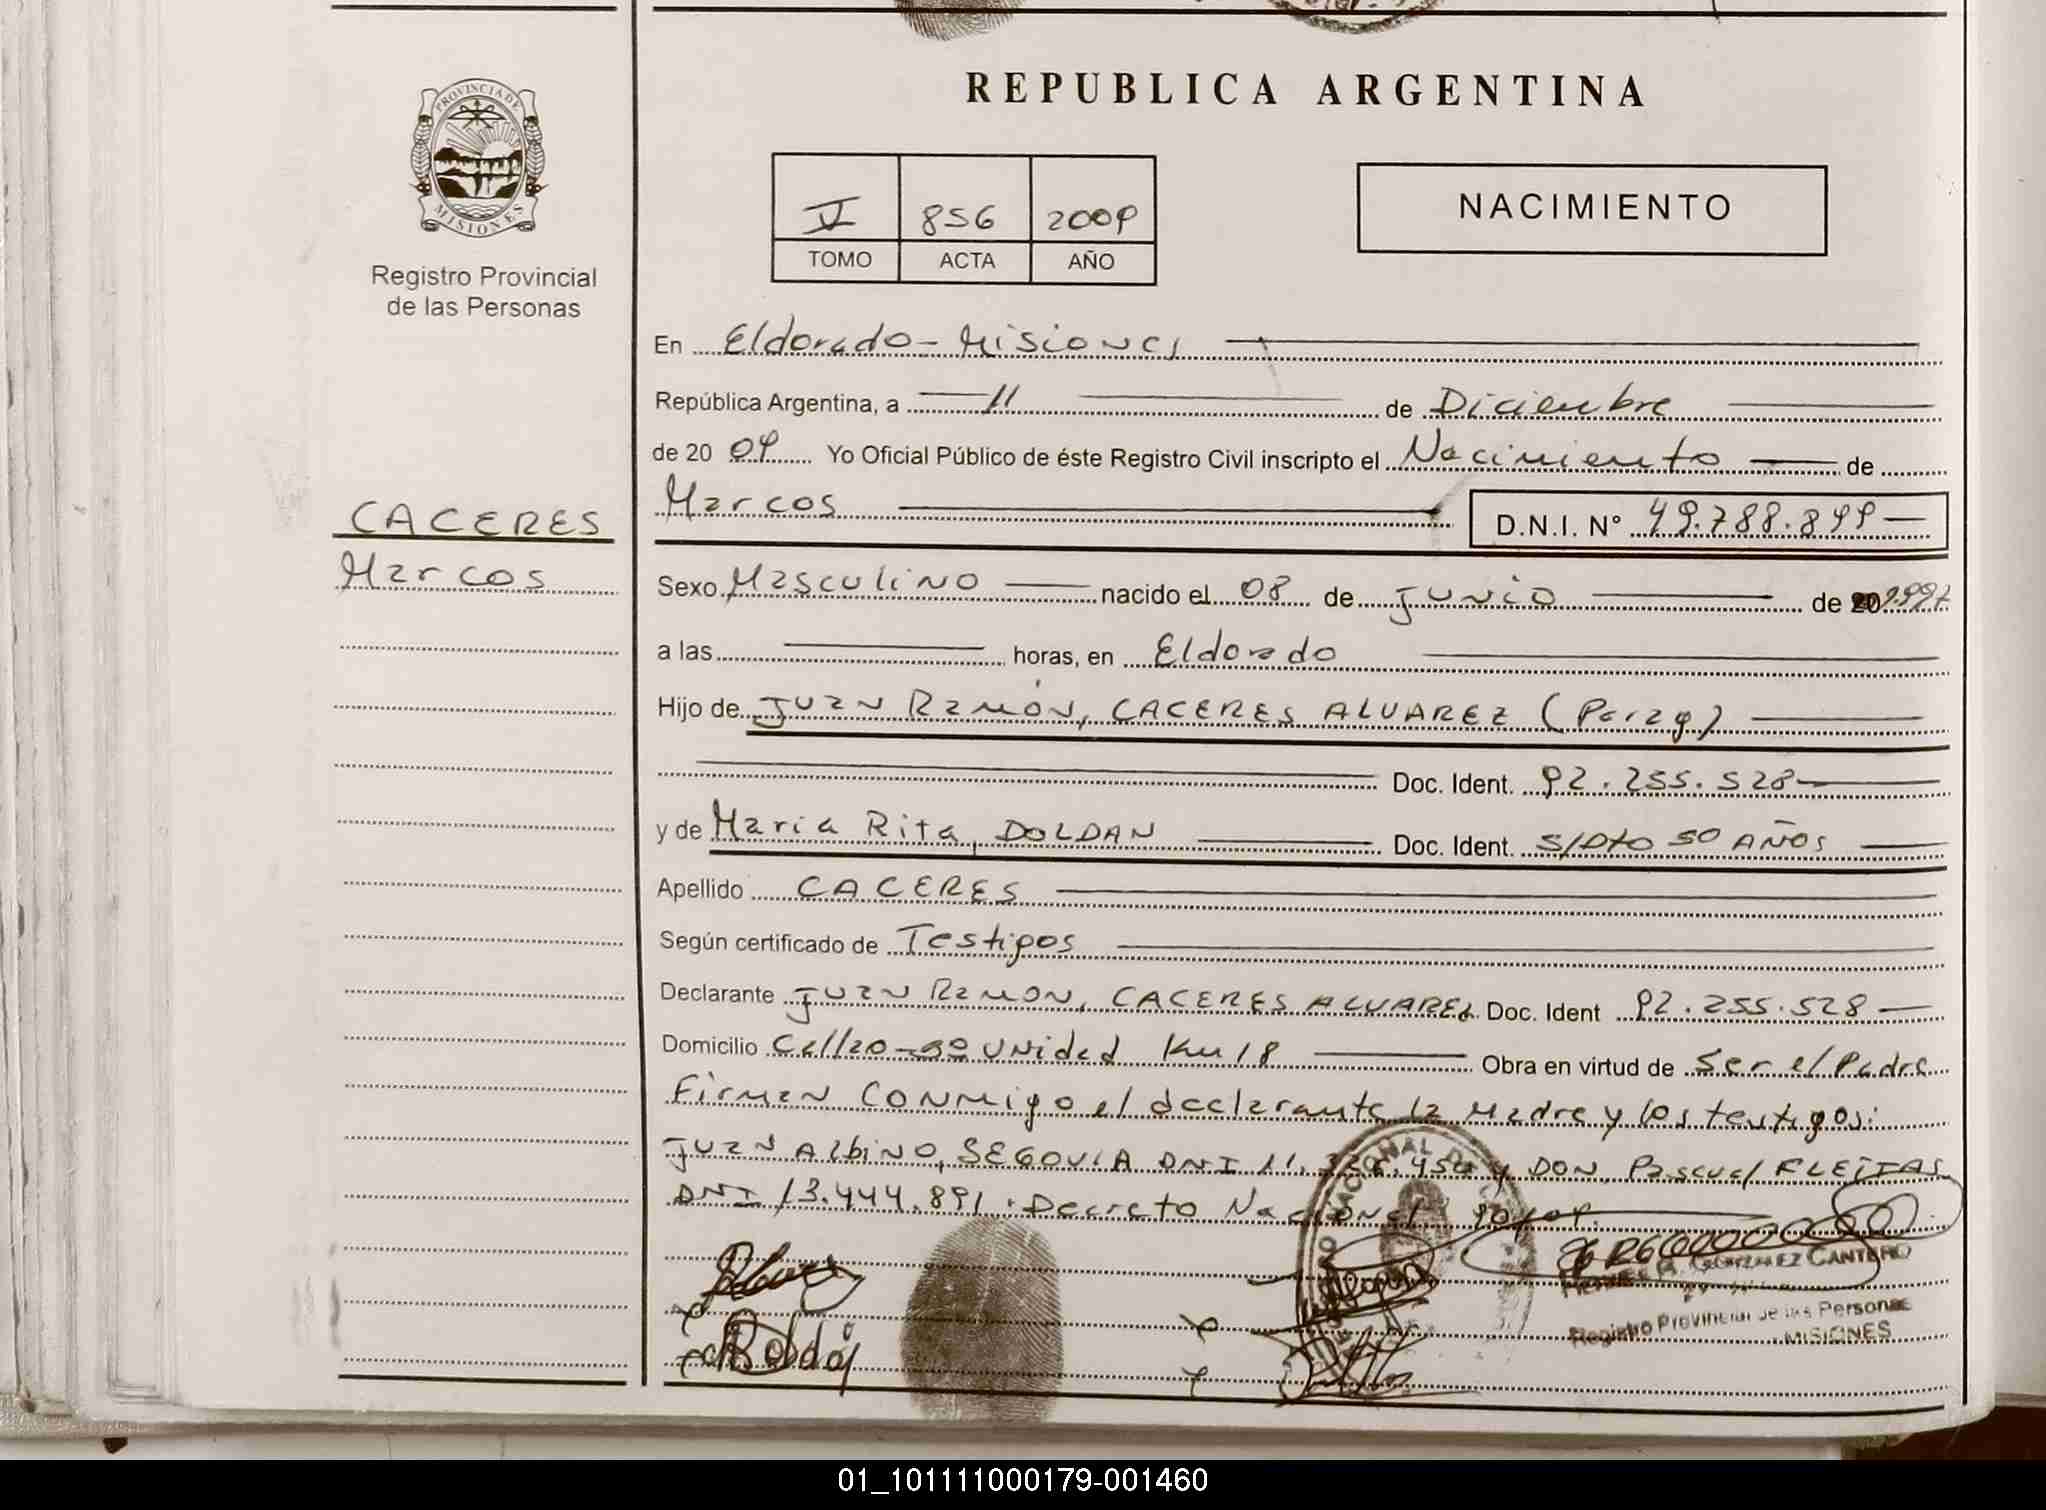 REPUBLICA ARGENTINA
PROVINCIA DE
MISIONES
Registro Provincial
de las Personas
V 856 2009
TOMO ACTA AÑO
NACIMIENTO
En Eldorado - Misiones
República Argentina, a 11 de Diciembre
de 20 09 Yo Oficial Público de éste Registro Civil inscripto el Nacimiento de
Marcos D.N.I. N° 49.788.899
CACERES
Marcos
Sexo Masculino nacido el 08 de Junio de 20 1.997
a las horas, en Eldorado
Hijo de Juan Ramón, CACERES ALVAREZ (Parag)
Doc. Ident. 92.255.528
y de Maria Rita, DOLDAN Doc. Ident. S/Dto 50 AÑOS
Apellido CACERES
Según certificado de Testigos
Declarante Juan Ramon, CACERES ALVAREZ Doc. Ident 92.255.528
Domicilio Callao - Unidad Km 18 Obra en virtud de Ser el Padre
Firman conmigo el declarante la Madre y los testigos:
Juan Albino, SEGOVIA DNI 11. y DON Pascual FLEITAS
DNI 13.444.891. Decreto Nacional 90/09.
GONZALEZ CANTERO
Registro Provincial de las Personas
MISIONES
01_101111000179-001460